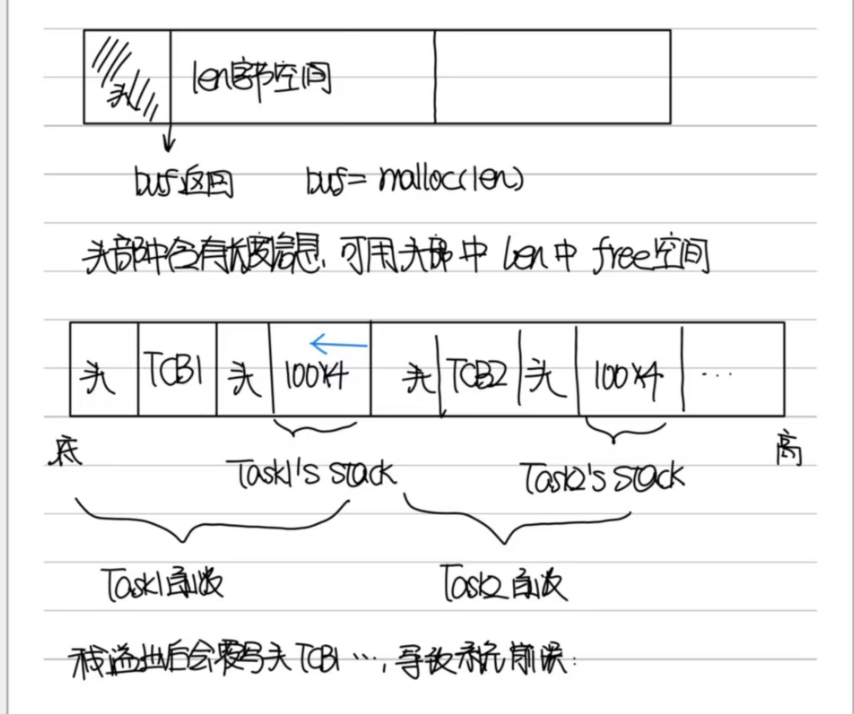 头 len字节空间
buf返回 buf=malloc(len)
头部中含有长度信息, 可用头部中 len中 free空间
头 TCB1 头 100×4 头 TCB2 头 100×4 ...
底 高
Task1's Stack Task2's Stack
Task1函数 Task2函数
栈溢出后会覆写头 TCB1 ..., 导致系统崩溃: